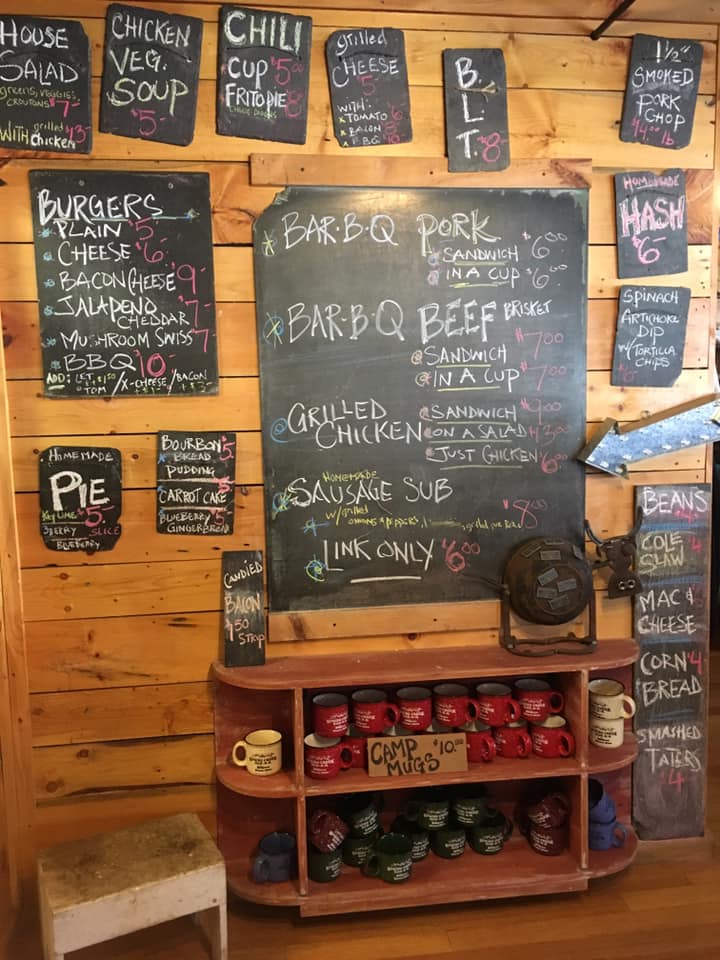 HOUSE
SALAD
greens, veggies,
croutons $7-
WITH grilled
chicken $13-
CHICKEN
VEG.
SOUP
$5-
CHILI
CUP $5.00
FRITO PIE $8
grilled
CHEESE
5-
WITH:
x TOMATO 6
x BACON 8
x BBQ 10
B.
L.
T. $8
1 1/2"
SMOKED
PORK
CHOP
$14.00 lb
BURGERS
PLAIN 5-
CHEESE $6-
BACON CHEESE 9
JALAPENO
CHEDDAR 7-
MUSHROOM SWISS 7
BBQ $10-
ADD: LET
TOM / X-CHEESE / BACON
BAR·B·Q PORK
SANDWICH $6.00
IN A CUP $6.00
BAR·B·Q BEEF BRISKET
SANDWICH $7.00
IN A CUP $7.00
GRILLED
CHICKEN
SANDWICH $9.00
ON A SALAD $13.00
JUST CHICKEN $6.00
HOMEMADE
SAUSAGE SUB
w/grilled
onions & peppers $8.00
LINK ONLY $6.00
HOMEMADE
HASH
$6-
SPINACH
ARTICHOKE
DIP
w/TORTILLA
CHIPS
HOMEMADE
PIE
KEY LIME $5- SLICE
BLUEBERRY
BOURBON $5-
BREAD
PUDDING
CARROT CAKE
BLUEBERRY 5
GINGERBREAD
CANDIED
BACON
$1.50
STRIP
BEANS
COLE $4
SLAW
MAC &
CHEESE
CORN $4
BREAD
SMASHED
TATERS
4
CAMP $10.00
MUGS